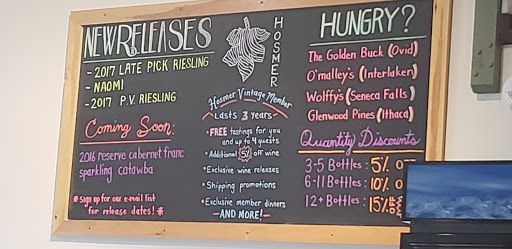 NEW RELEASES
- 2017 LATE PICK RIESLING
- NAOMI
- 2017 P.V. RIESLING
Coming Soon:
2016 reserve cabernet franc
sparkling catawba
* sign up for our e-mail list
for release dates! *
HOSMER
Hosmer Vintage Member
Lasts 3 years
• FREE tastings for you
and up to 4 guests
• Additional 5% off wine
• Exclusive wine releases
• Shipping promotions
• Exclusive member dinners
— AND MORE! —
HUNGRY?
The Golden Buck (Ovid)
O'malley's (Interlaken)
Wolffy's (Seneca Falls)
Glenwood Pines (Ithaca)
Quantity Discounts
3-5 Bottles: 5% OFF
6-11 Bottles: 10% O
12+ Bottles: 15%